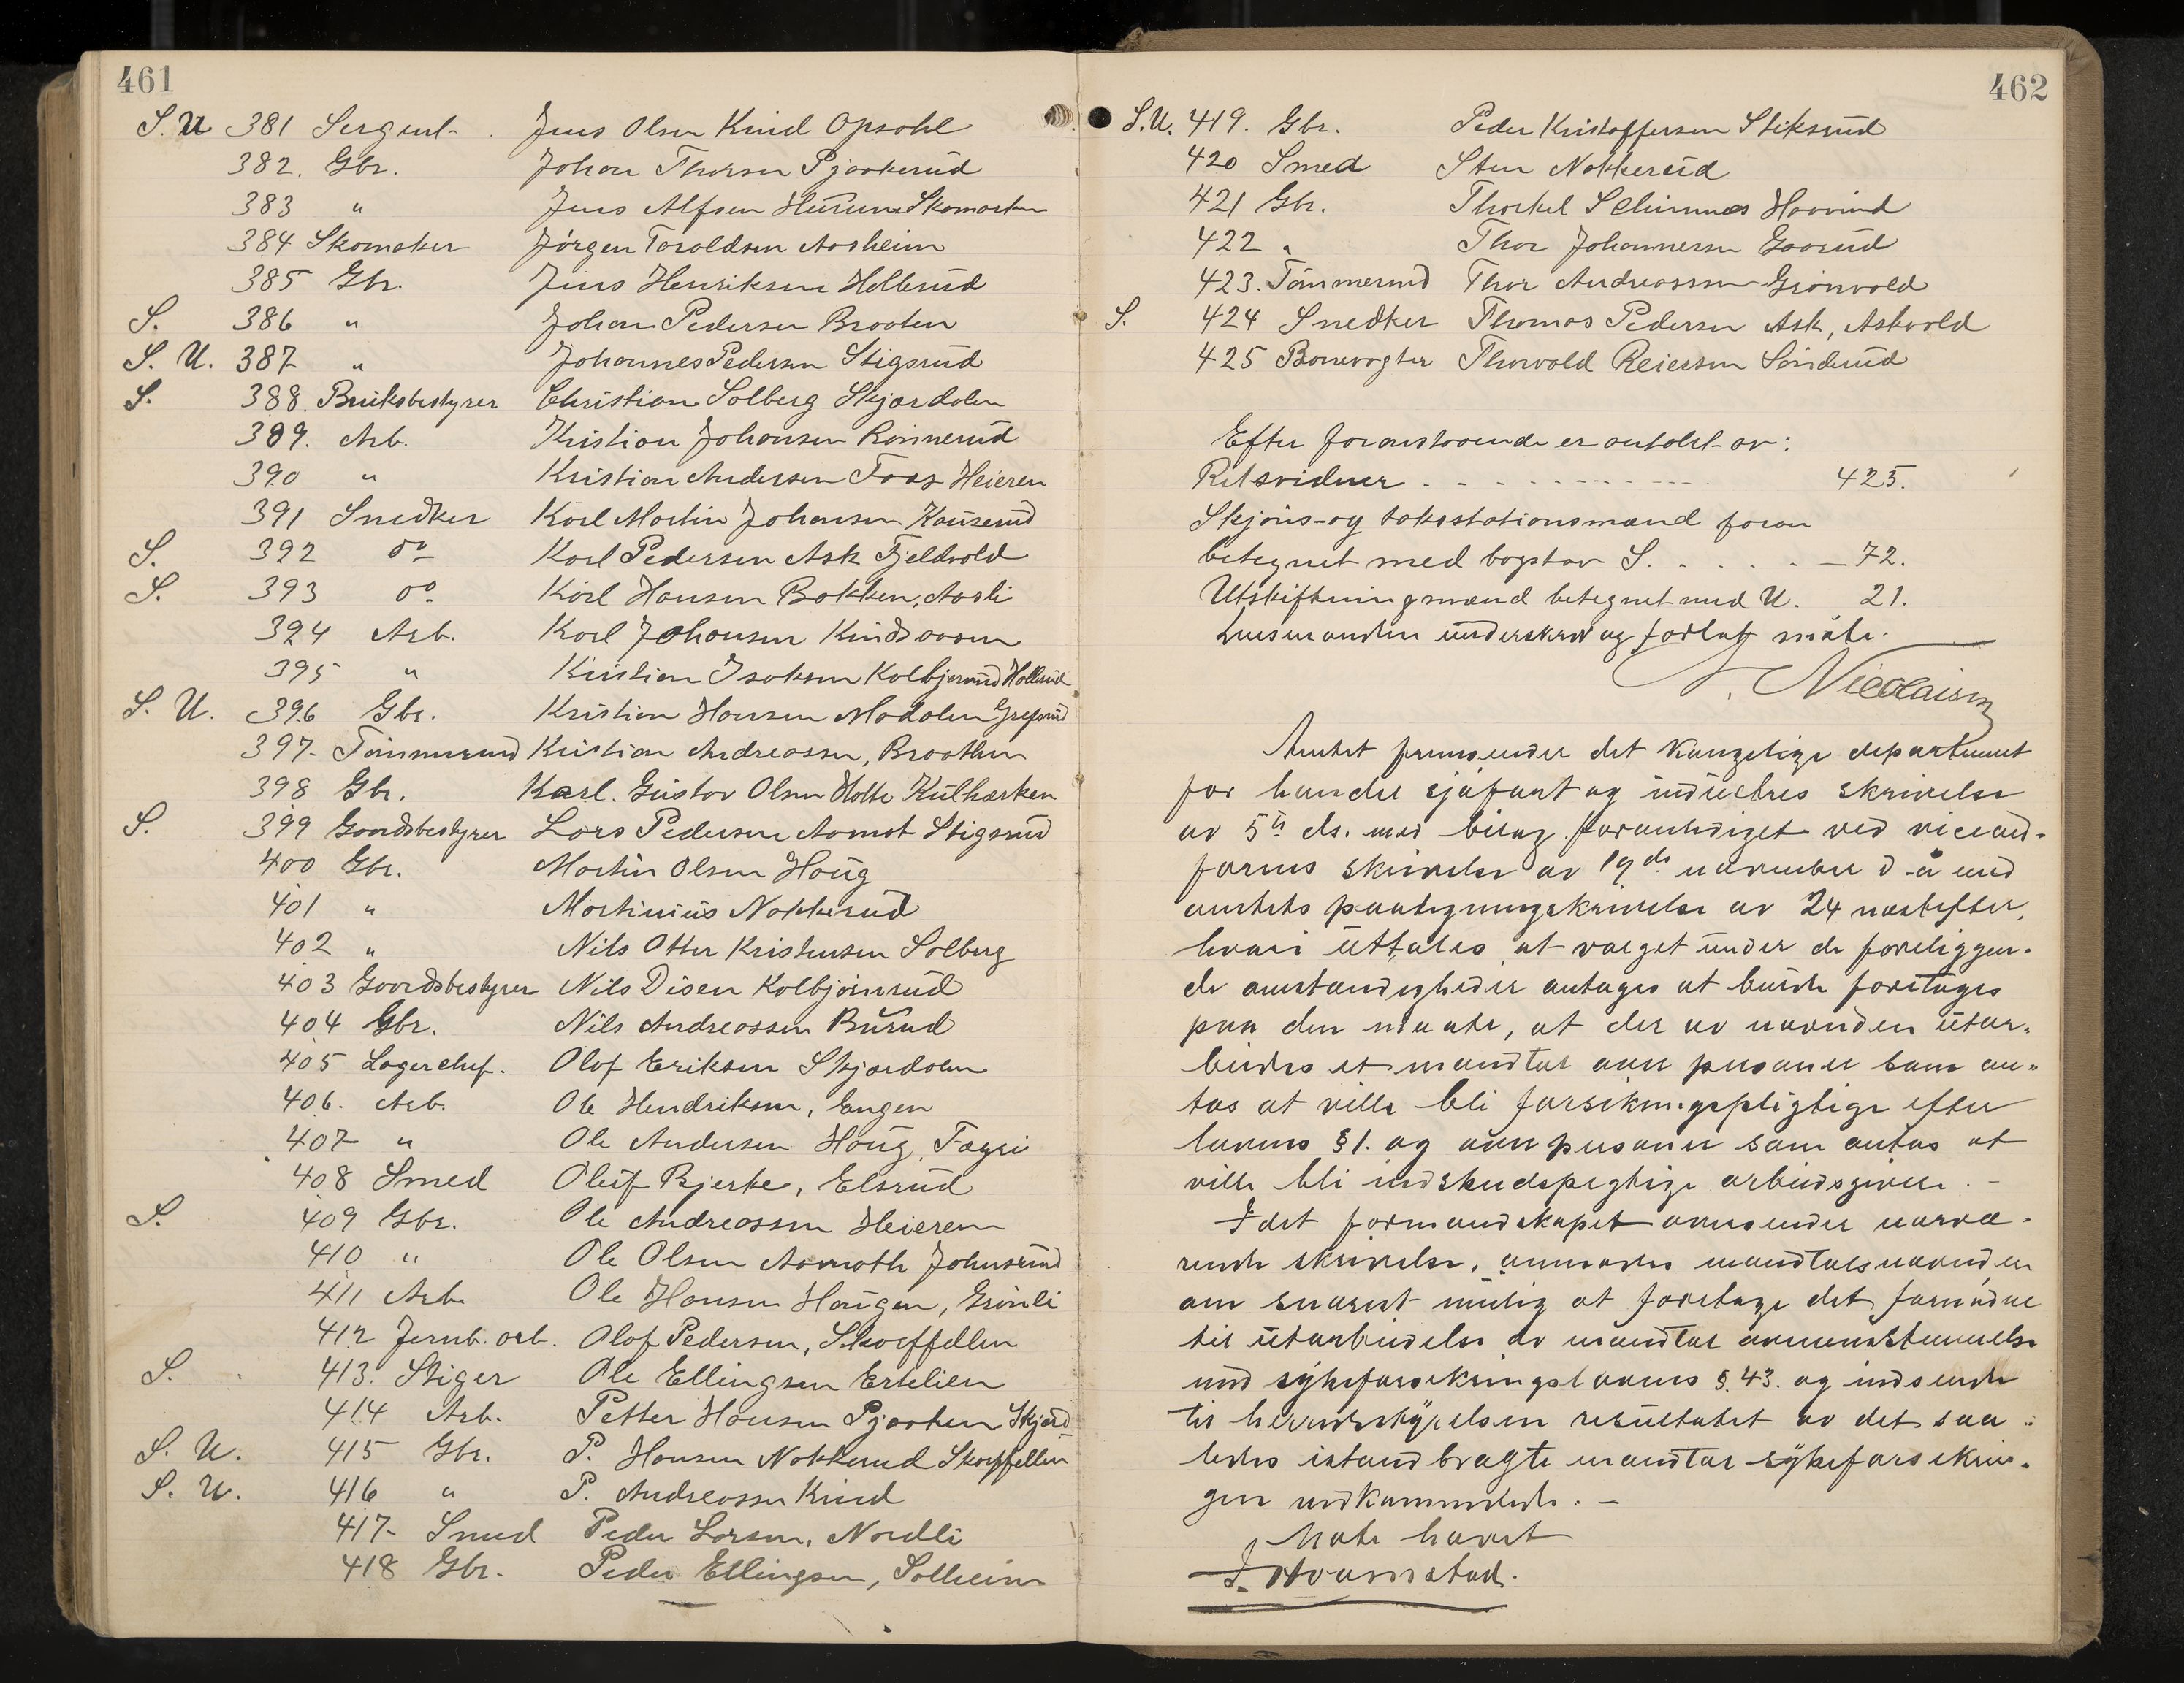 461
S. U 381 Sergent Jens Olsen Kind Opsahl
382. Gbr. Johan Thorsen Pjaakerud
383 " Jens Alfsen Hurum Skomaker
384 Skomaker Jörgen Taraldsen Aasheim
385 Gbr. Jens Henriksen Hellerud
S. 386 " Johan Pedersen Braaten
S. U. 387 " Johannes Pedersen Stigsrud
S. 388. Bruksbestyrer Christian Solberg Skjærdalen
389. Arb. Kristian Johansen Rönnerud
390 " Kristian Andersen Foss Heieren
391 Snedker Karl Martin Johansen
S. 392 do Karl Pedersen Ask Fjeldvold
S. 393 do. Karl Hansen Bakken, Aasli
394 Arb. Karl Johansen Kindsaasen
395 " Kristian Isaksen Kolbjernrud Hollerud
S. U. 396 Gbr. Kristian Hansen Modalen Grefsrud
397- Tömmermd Kristian Andreassen, Braathen
398 Gbr. Karl. Gustav Olsen Holte
S. 399 Gaardsbestyrer Lars Pedersen Aamot Stigsrud
400 Gbr. Martin Olsen Haug
401 " Martinius Nakkerud
402 " Nils Otter Kristensen Solberg
403 Gaardsbestyrer Nils Disen Kolbjörnrud
404 Gbr. Nils Andreassen Burud
405 Lagerchef. Olaf Eriksen Skjærdalen
406. Arb. Ole Hendriksen, Engen
407 " Ole Andersen Haug, Fagli
408 Smed Oluf Bjerke, Elsrud
S. 409 Gbr. Ole Andreassen Heieren
410 " Ole Olsen Aamoth Johnsrud
411 Arb. Ole Hansen Haugen, Grönli
412 Jernb. arb. Olaf Pedersen, Skoeffellen
S. 413. Stiger Ole Ellingsen Ertelien
414 Arb. Petter Hansen Pjaaken Skjærd
S. U. 415 Gbr. P. Hansen Nakkerud Skoeffellen
S. U. 416 " P. Andreassen Kind
417- Smed Peder Larsen, Nordli
418 Gbr. Peder Ellingsen, Solheim
462
S.U. 419. Gbr. Peder Kristoffersen Stiksrud
420 Smed Sten Nakkerud
421 Gbr. Thorkel Schinnes Haavind
422 " Thor Johannesen Gaarud
423. Tömmermd Thor Andreassen Grönvold
S. 424 Snedker Thomas Pedersen Ask, Askvold
425 Banevogter Thorvald Reiersen Sönderud
Efter foranstaaende er antalet av:
Retsvidner . . . . . . . 425.
Skjöns-og takstationsmænd foran
betegnet med bogstav S. . . . . — 72.
Utskiftningsmænd betegnet med U. 21.
Lensmanden underskrev og forlot möte.
Nicolaisen
Amtet fremsender det kongelige departement
for handel sjöfart og industris skrivelse
av 5te ds. med bilag foranlediget ved viceord-
förers skrivelse av 19de november d. å med
amtets paategningskrivelse av 24 næstefter,
hvori uttales at valget under de foreliggen-
de omstændigheder antages at burde foretages
paa den maate, at der av nævnden utar-
beides et mandtal over personer som an-
tas at ville bli forsikringspligtige efter
lovens § 1. og over personer som antas at
ville bli indskudspligtige arbeidsgivere. -
Idet formandskapet oversender nærvæ-
rende skrivelse, anmodes mandtalsnævnden
om snarest mulig at foretage det fornödne
til utarbeidelse av mandtal overensstemmelse
med sykeforsikringslovens §. 43. og indsende
til herredsstyrelsen resultatet av det saa-
ledes istandbragte mandtal sykeforsikrin-
gen vedkommende. -
Möte hævet